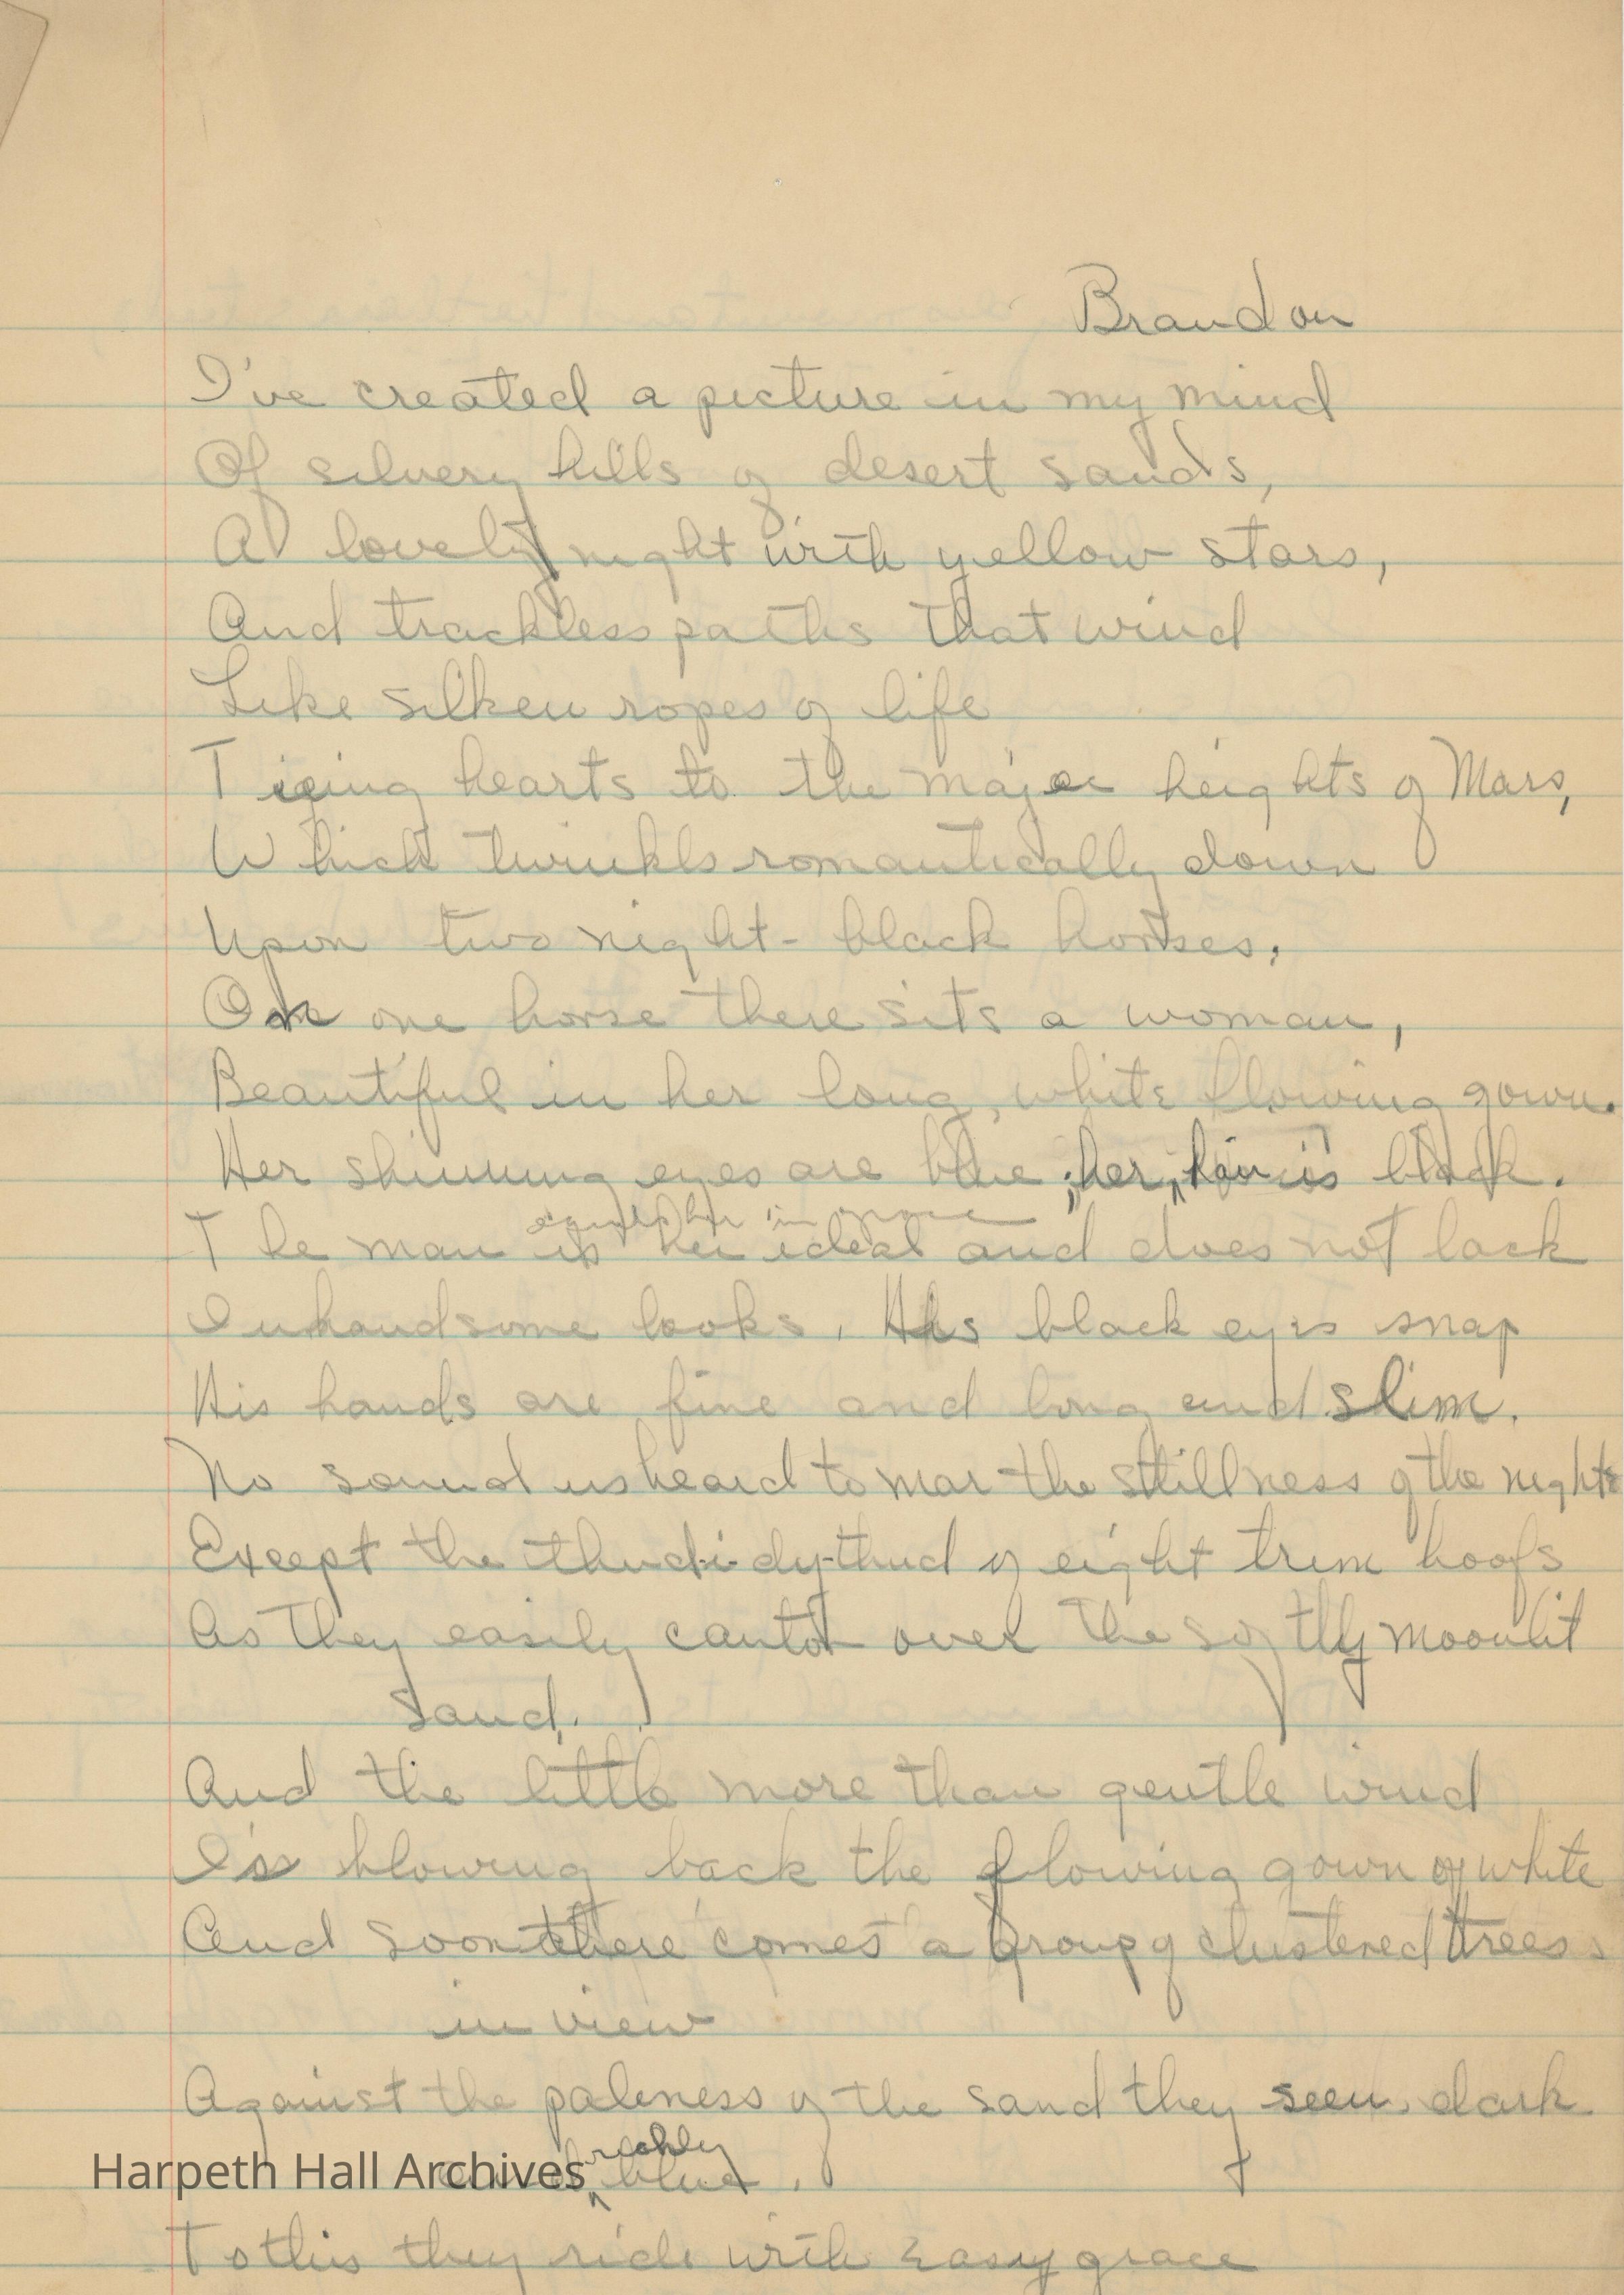 Brandon
I've created a picture in my mind
Of silvery hills of desert sands,
A lovely night with yellow stars,
And trackless paths that wind
Like silken ropes of life
Tieing hearts to the major heights of Mars,
Which twinkls romantically down
Upon two night-black horses.
On one horse there sits a woman,
Beautiful in her long, white flowing gown.
Her shinning eyes are blue; her hair is black.
equals her in grace
The man is her ideal and does not lack
In handsome looks. His black eyes snap
His hands are fine and long and slim.
No sound is heard to mar the stillness of the night
Except the thud-i-dy-thud of eight trim hoofs
As they easily canter over the softly moonlit
sand.
And the little more than gentle wind
Is blowing back the flowing gown of white
And soon there comes a group of clustered trees
in view
Against the paleness of the sand they seem dark
richly
and blue.
Harpeth Hall Archives
To this they ride with easy grace